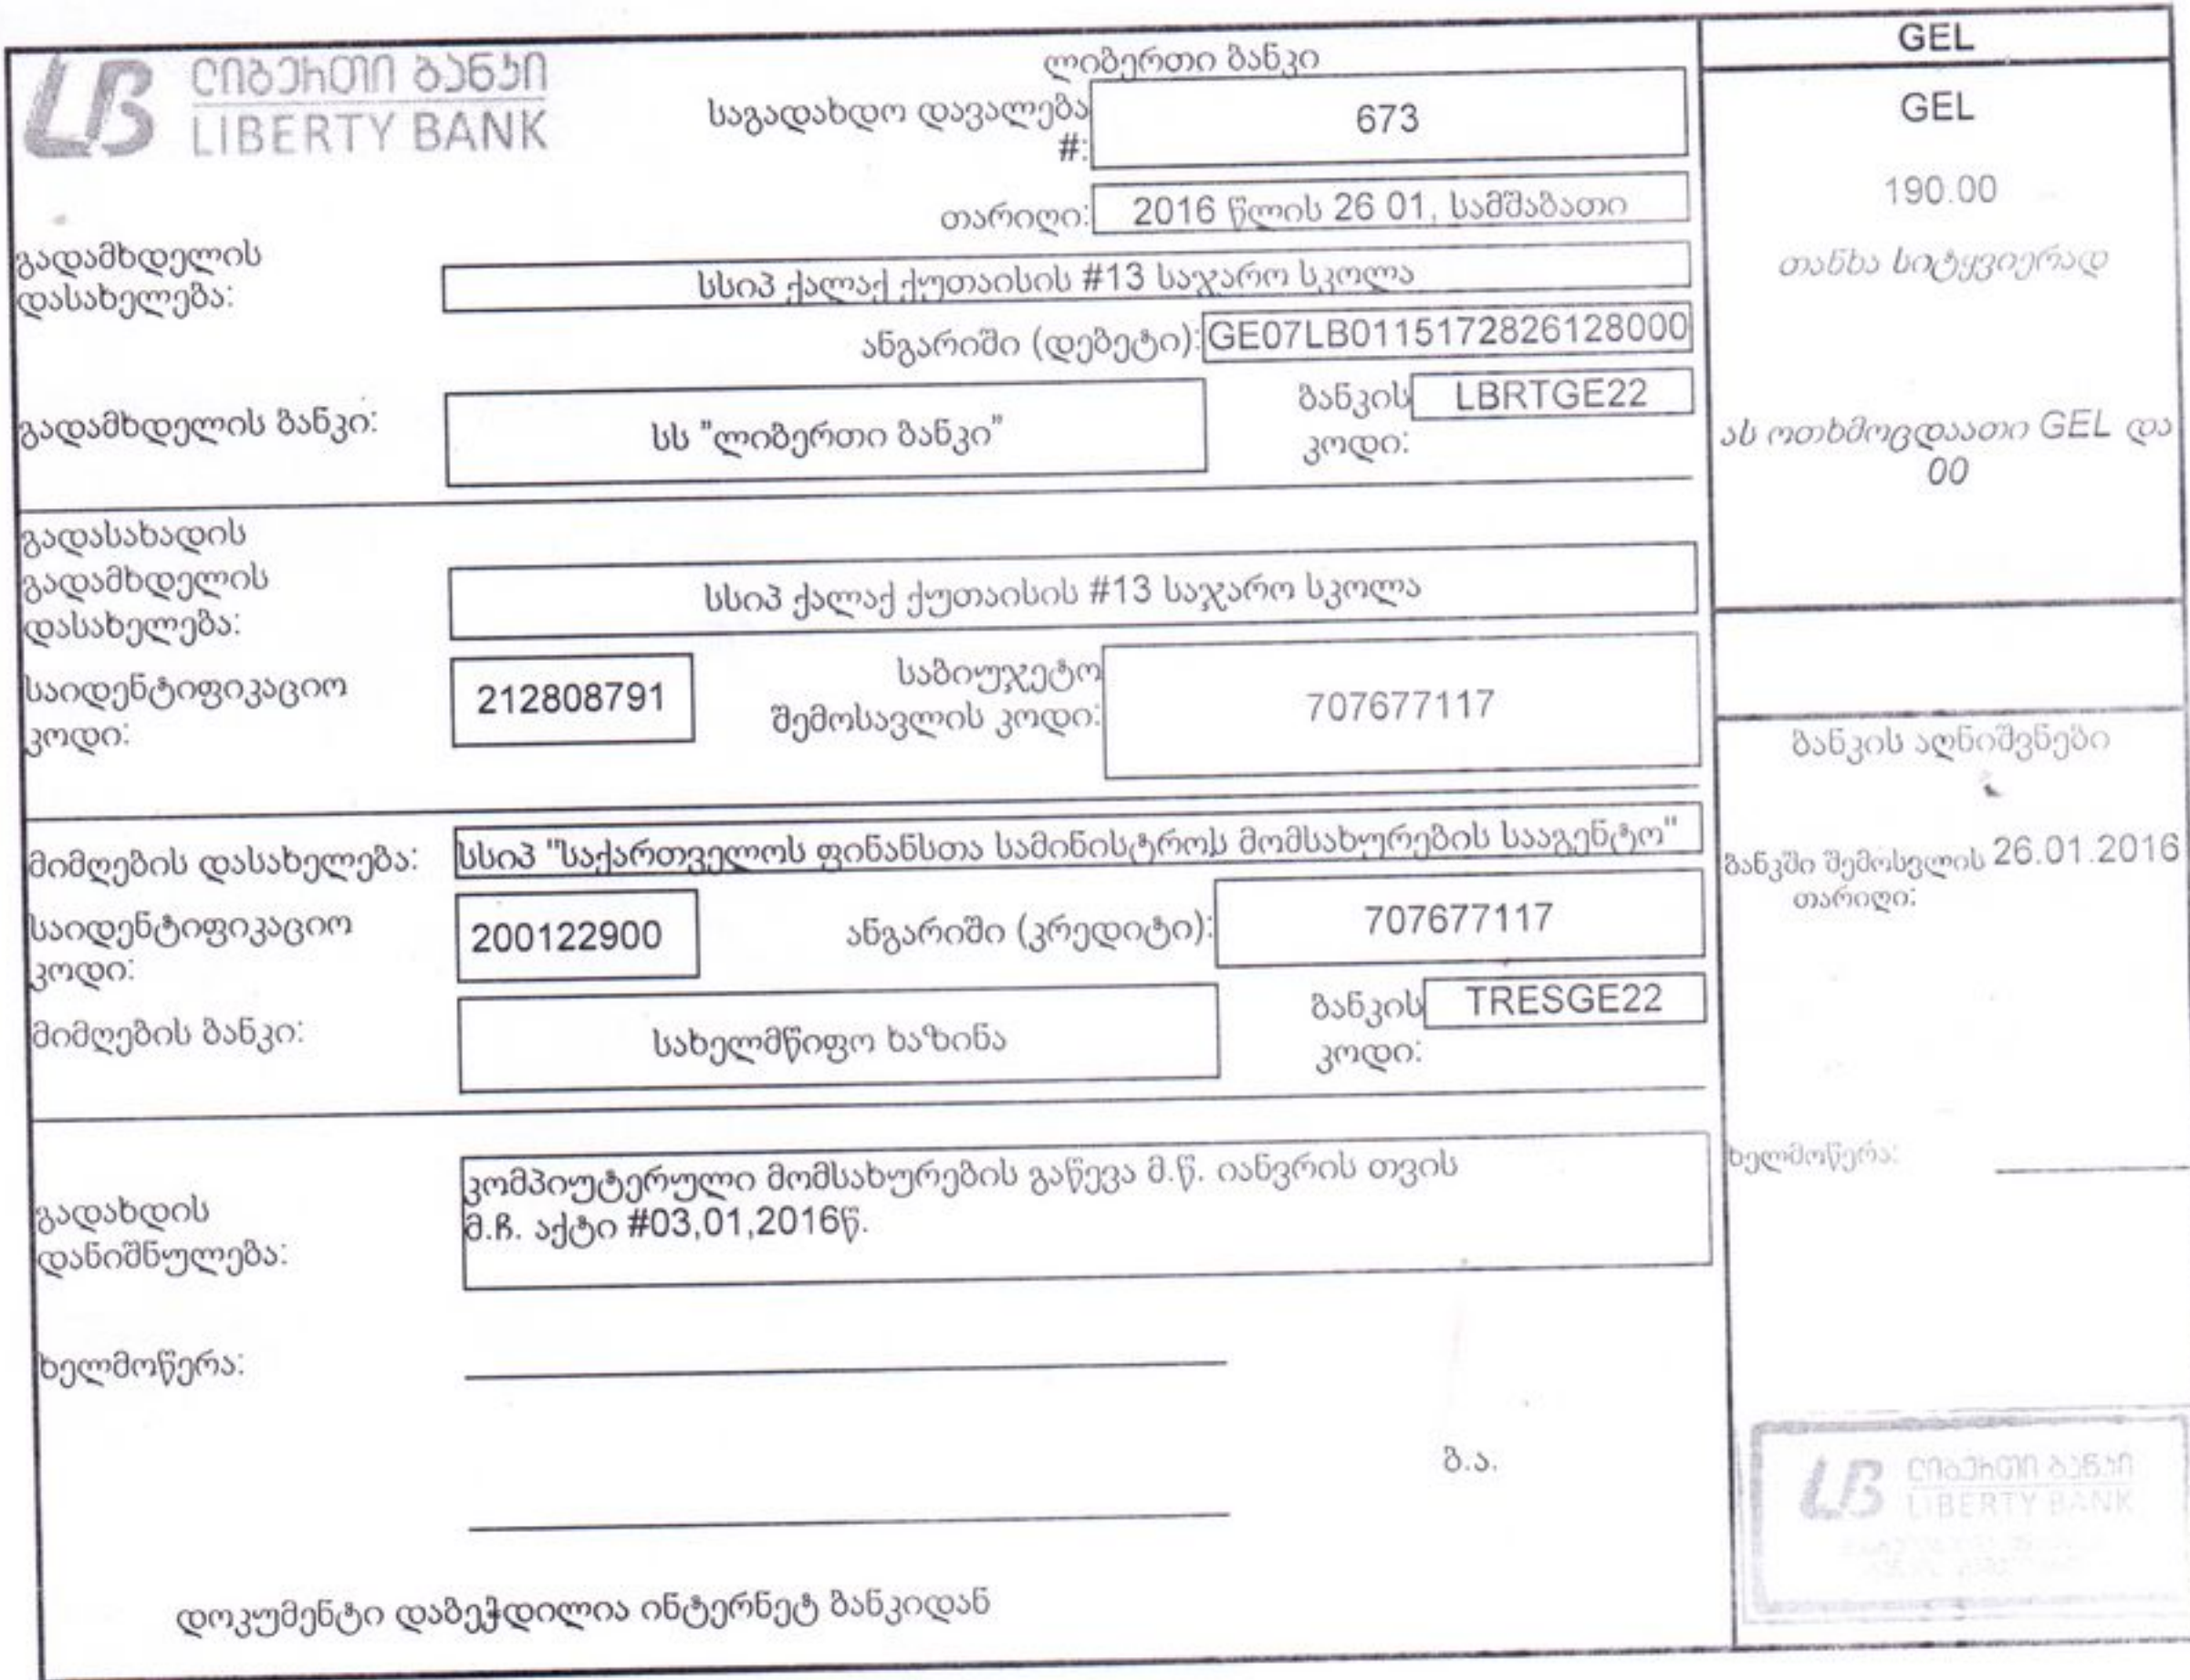 ლიბერთი ბანკი
LIBERTY BANK
ლიბერთი ბანკი
საგადახდო დავალება
#:
673
თარიღი:
2016 წლის 26 01, სამშაბათი
გადამხდელის
დასახელება:
სსიპ ქალაქ ქუთაისის #13 საჯარო სკოლა
ანგარიში (დებეტი):
GE07LB0115172826128000
გადამხდელის ბანკი:
სს "ლიბერთი ბანკი"
ბანკის
კოდი:
LBRTGE22
გადასახადის
გადამხდელის
დასახელება:
სსიპ ქალაქ ქუთაისის #13 საჯარო სკოლა
საიდენტიფიკაციო
კოდი:
212808791
საბიუჯეტო
შემოსავლის კოდი:
707677117
მიმღების დასახელება:
სსიპ "საქართველოს ფინანსთა სამინისტროს მომსახურების სააგენტო"
საიდენტიფიკაციო
კოდი:
200122900
ანგარიში (კრედიტი):
707677117
მიმღების ბანკი:
სახელმწიფო ხაზინა
ბანკის
კოდი:
TRESGE22
გადახდის
დანიშნულება:
კომპიუტერული მომსახურების გაწევა მ.წ. იანვრის თვის
მ.ჩ. აქტი #03,01,2016წ.
ხელმოწერა:
ბ.ა.
დოკუმენტი დაბეჭდილია ინტერნეტ ბანკიდან
GEL
GEL
190.00
თანხა სიტყვიერად
ას ოთხმოცდაათი GEL და
00
ბანკის აღნიშვნები
ბანკში შემოსვლის 26.01.2016
თარიღი:
ხელმოწერა:
ლიბერთი ბანკი
LIBERTY BANK